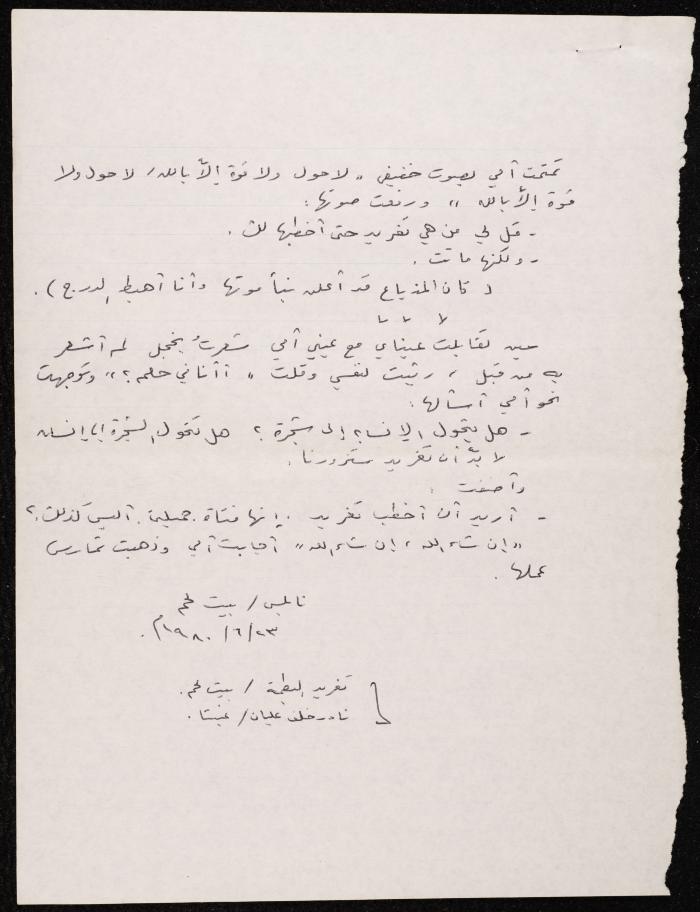 تمتمت أمي بصوت خفيض "لا حول ولا قوة إلاّ بالله، لا حول ولا
قوة إلاّ بالله" ورفعت صوتها:
- قل لي من هي تغريد حتى أخطبها لك.
- ولكنها ماتت.
( كان المذياع قد أعلن نبأ موتها وأنا أهبط الدرج ).
حين تقابلت عيناي مع عيني أمي شعرتُ بخجل لم أشعر
به من قبل، رثيت لنفسي وقلت " أأنا في حلم؟" وتوجهت
نحو أمي أسألها:
- هل يتحول الإنسان إلى شجرة؟ هل تتحول الشجرة إلى إنسان
لا بدّ أن تغريد ستزورنا.
وأضفت:
- أريد أن أخطب تغريد. إنها فتاة جميلة. أليس كذلك؟
"إن شاء الله، إن شاء الله" أجابت أمي وذهبت تمارس
عملها.
نابلس / بيت لحم
٢٣/٦/١٩٨٠م.
تغريد البطمة / بيت لحم.
نادر خلف عليان /